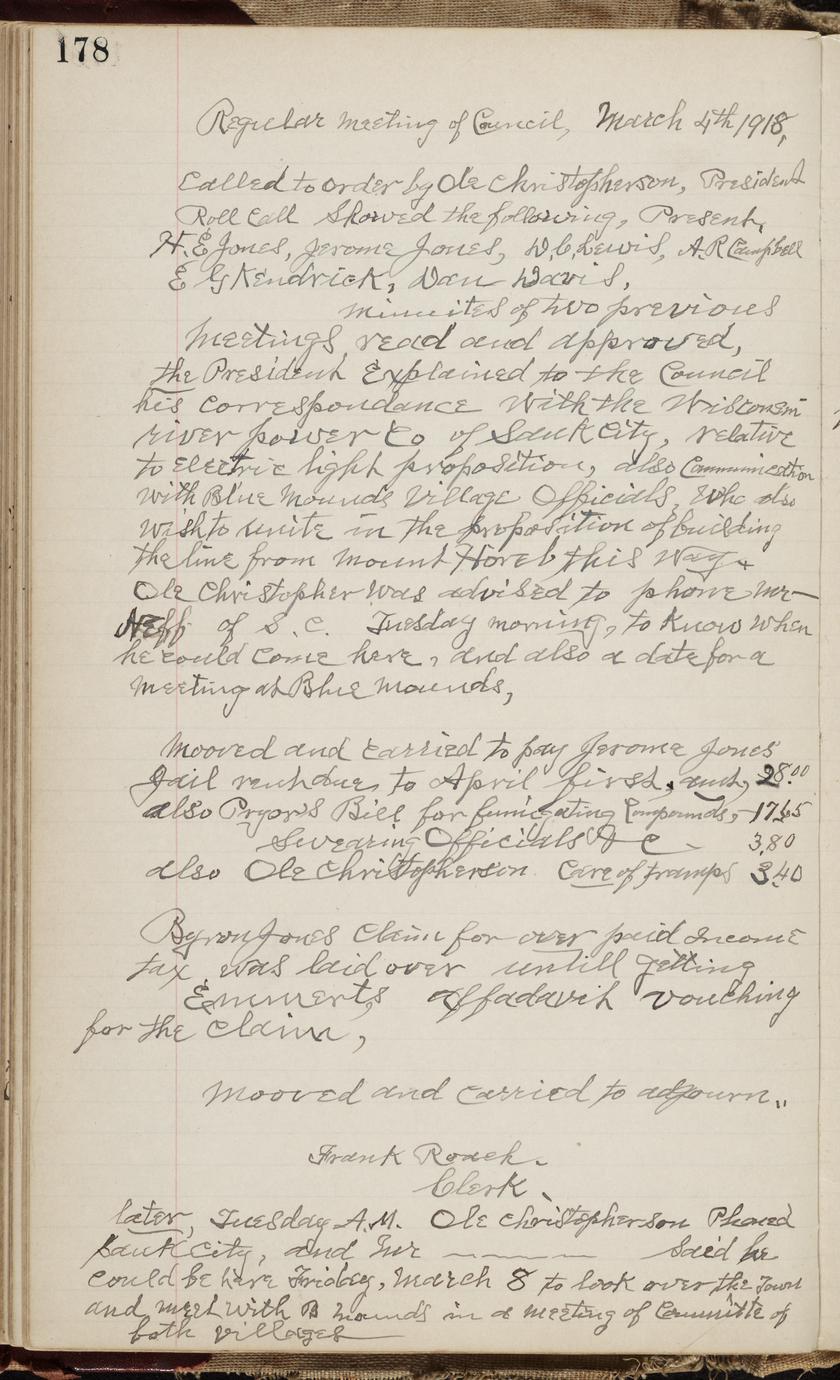 178
Regular Meeting of Council, March 4th 1918,
Called to order by Ole Christopherson, President
Roll Call Showed the following, Present,
H. E Jones, Jerome Jones, W. C. Lewis, A. R Campbell
E G Kendrick, Dan Davis,
minuites of two previous
Meetings read and approved,
the President Explained to the Council
his correspondance with the Wisconsin
river power Co of Sauk City, relative
to electric light proposition, also Communication
with Blue Mounds Village Officials, Who also
wish to unite in the proposition of building
the line from Mount Horeb this way.
Ole Christopher was advised to phone Mr
Neff of S. C. Tuesday morning, to Know when
he could come here, and also a date for a
meeting at Blue Mounds,
Mooved and carried to pay Jerome Jones
Jail rent due, to April first, and, 28.00
also Pryor's Bill for fumigating Compounds, 17.65
Swearing Officials & c 3,80
also Ole Christopherson Care of tramps 3.40
Byron Jones Claim for over paid Income
tax, was laid over untill getting
Emmerts, affadavit vouching
for the claim,
Mooved and carried to adjourn..
Frank Roach.
Clerk.
later, Tuesday A.M. Ole Christopherson Phoned
Sauk City, and Mr ———— Said he
could be here Friday, March 8 to look over the Town
and meet with B Mounds in a meeting of Committe of
both villages